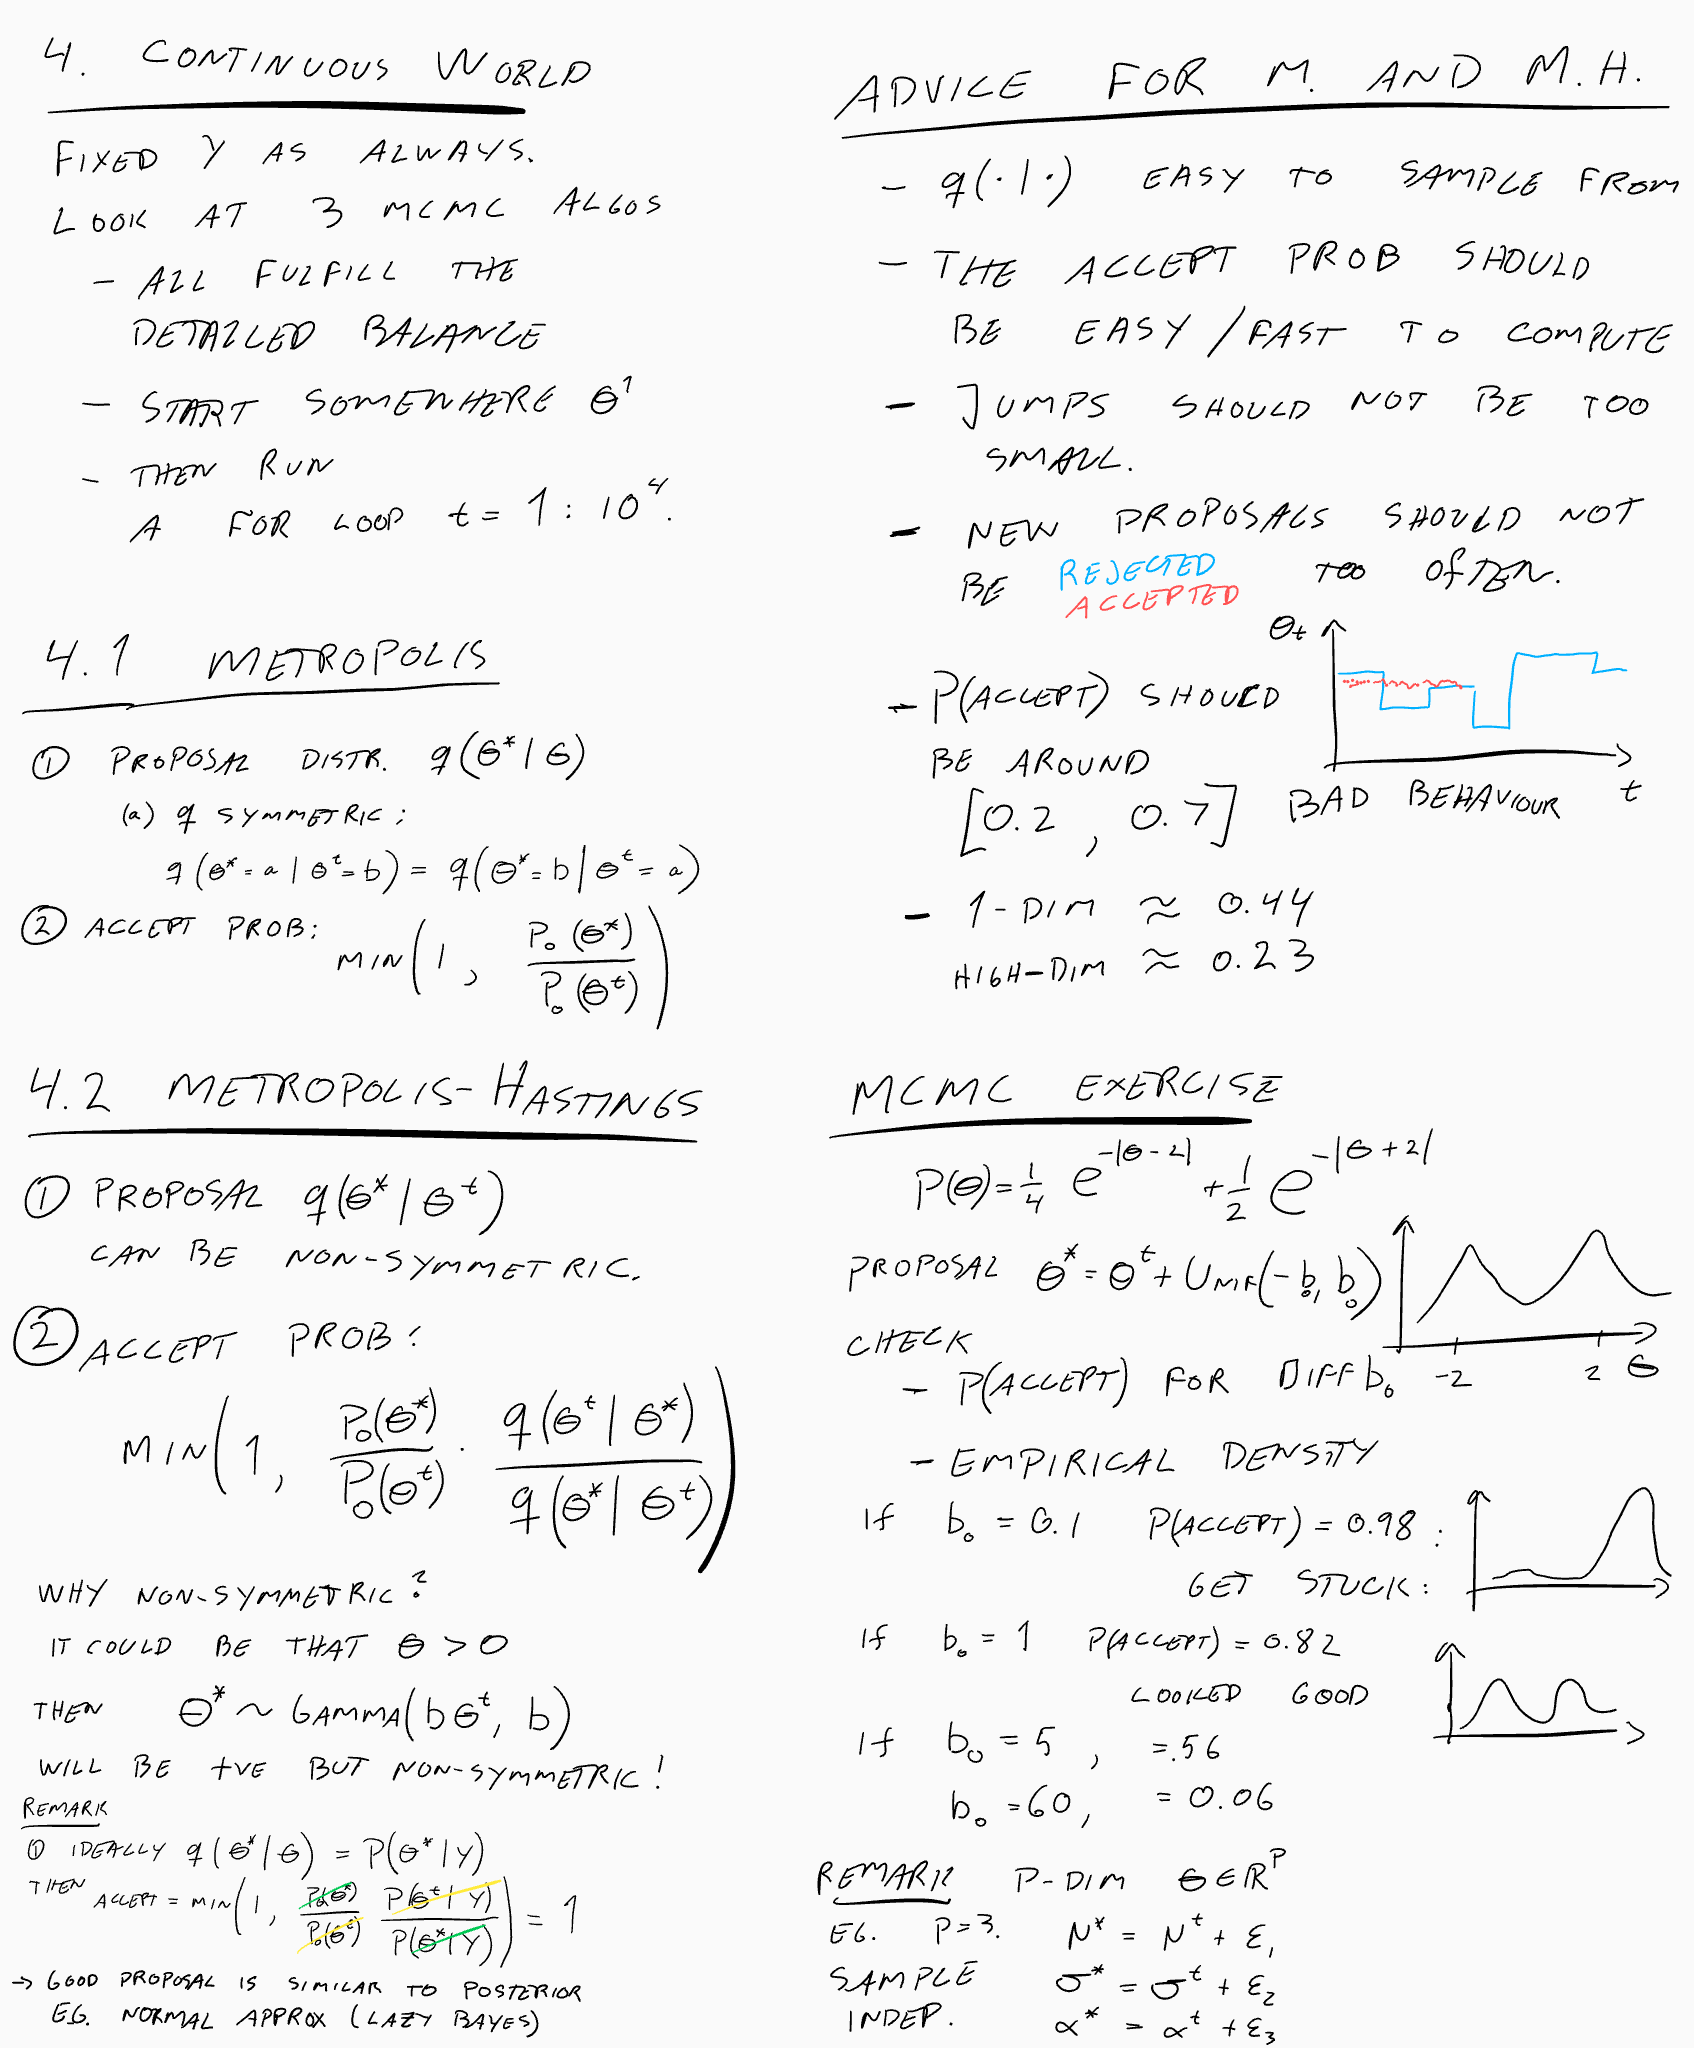 4. CONTINUOUS WORLD
FIXED Y AS ALWAYS.
LOOK AT 3 MCMC ALGOS
- ALL FULFILL THE
DETAILED BALANCE
- START SOMEWHERE θ¹
- THEN RUN
A FOR LOOP t = 1 : 10⁴.
4.1 METROPOLIS
① PROPOSAL DISTR. q(θ*|θ)
(a) q SYMMETRIC:
q(θ*=a|θᵗ=b) = q(θ*=b|θᵗ=a)
② ACCEPT PROB:
MIN(1, P₀(θ*)/P₀(θᵗ))
4.2 METROPOLIS-HASTINGS
① PROPOSAL q(θ*|θᵗ)
CAN BE NON-SYMMETRIC.
② ACCEPT PROB:
MIN(1, P₀(θ*)/P₀(θᵗ) · q(θᵗ|θ*)/q(θ*|θᵗ))
WHY NON-SYMMETRIC?
IT COULD BE THAT θ > 0
THEN θ* ~ GAMMA(bθᵗ, b)
WILL BE +VE BUT NON-SYMMETRIC!
REMARK
① IDEALLY q(θ*|θ) = P(θ*|Y)
THEN ACCEPT = MIN(1, P₀(θ*)/P₀(θᵗ) P(θᵗ|Y)/P(θ*|Y)) = 1
→ GOOD PROPOSAL IS SIMILAR TO POSTERIOR
EG. NORMAL APPROX (LAZY BAYES)
ADVICE FOR M. AND M.H.
- q(·|·) EASY TO SAMPLE FROM
- THE ACCEPT PROB SHOULD
BE EASY/FAST TO COMPUTE
- JUMPS SHOULD NOT BE TOO
SMALL.
- NEW PROPOSALS SHOULD NOT
BE REJECTED TOO OFTEN.
ACCEPTED
θt
- P(ACCEPT) SHOULD
BE AROUND
[0.2, 0.7]
BAD BEHAVIOUR t
- 1-DIM ≈ 0.44
HIGH-DIM ≈ 0.23
MCMC EXERCISE
P(θ)=¼ e^-|θ-2| + ½ e^-|θ+2|
PROPOSAL θ* = θᵗ + UNIF(-b₀, b₀)
CHECK
- P(ACCEPT) FOR DIFF b₀
-2 2 θ
- EMPIRICAL DENSITY
If b₀ = 0.1 P(ACCEPT) = 0.98 :
GET STUCK:
If b₀ = 1 P(ACCEPT) = 0.82
LOOKED GOOD
If b₀ = 5, =.56
b₀ =60, = 0.06
REMARK P-DIM θ∈ℝᴾ
EG. P=3. N* = Nᵗ + ε₁
SAMPLE σ* = σᵗ + ε₂
INDEP. α* = αᵗ + ε₃